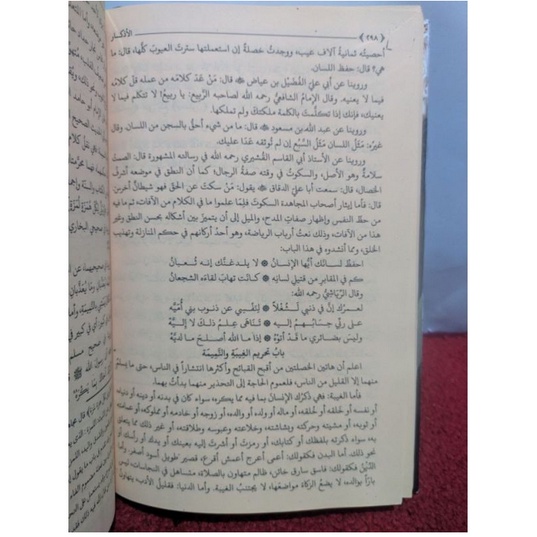 ﴿٢٩٨﴾ الأذكـــار
أحصيتُه ثمانيةُ آلاف عيب، ووجدتُ خصلةً إن استعملتها سترتَ العيوبَ كلَّها، قال: ما
هي؟ قال: حفظ اللسان.
وروينا عن أبي عليّ الفُضَيْل بن عياض ﷺ قال: مَنْ عَدّ كلامَه من عمله قلّ كلامُه
فيما لا يعنيه. وقال الإمامُ الشافعيُّ رحمه الله لصاحبه الرَّبِيع: يا ربيعُ! لا تتكلم فيما لا
يعنيك، فإنك إذا تكلَّمتَ بالكلمة ملكتكَ ولم تملكها.
وروينا عن عبد الله بن مسعود قال: ما من شيء أحقُّ بالسجن من اللسان. وقال
غيرُه: مَثَلُ اللسان مَثَلُ السَّبُع إن لم تُوثقه عَدَا عليك.
وروينا عن الأستاذ أبي القاسم القُشيري رحمه الله في رسالته المشهورة قال: الصمتُ
سلامةٌ وهو الأصل، والسكوتُ في وقته صفةُ الرجال، كما أن النطق في موضعه أشرفُ
الخصال، قال: سمعت أبا عليّ الدقاق يقول: مَنْ سكتَ عن الحق فهو شيطانٌ أخرس.
قال: فأما إيثار أصحاب المجاهدة السكوتَ فلِمَا علموا ما في الكلام من الآفات، ثم ما فيه
من حظ النفس وإظهار صفات المدح، والميل إلى أن يتميزَ بين أشكاله بحسن النطق وغير
هذا من الآفات، وذلك نعتُ أرباب الرياضة، وهو أحدُ أركانهم في حكم المنازلة وتهذيب
الخلق، ومما أنشدوه في هذا الباب:
احفظ لسانَك أيُّها الإنسانُ لا يلـدغنّـك إنه ثُعبــانُ
كم في المقابر من قتيل لسانِه كانتْ تهابُ لقاءَه الشجعانُ
وقال الرِّيَاشِيُّ رحمه الله:
لعمرُك إنَّ في ذنبي لَشُغلاً لنَفْسِي عن ذنوب بني أُمَيَّه
على ربّي حسابُهمُ إليه تناهى علمُ ذلك لا إليَّه
وليس بضائري ما قد أتَوْه إذا ما الله أصلح ما لديَّه
بابُ تحريم الغِيبَةِ والنَّمِيمَة
اعلم أن هاتين الخصلتين من أقبح القبائح وأكثرها انتشاراً في الناس، حتى ما يَسلمُ
منهما إلا القليل من الناس، فلعموم الحاجة إلى التحذير منهما بدأتُ بهما.
فأما الغيبة: فهي ذكرُك الإِنسانَ بما فيه مما يكره، سواء كان في بدنه أو دينه أو دنياه،
أو نفسه أو خَلقه أو خُلقه، أو ماله أو ولده أو والده، أو زوجه أو خادمه أو مملوكه، أو عمامته
أو ثوبه، أو مشيته وحركته وبشاشته، وخلاعته وعبوسه وطلاقته، أو غير ذلك مما يتعلق
به، سواء ذكرته بلفظك أو كتابك، أو رمزتَ أو أشرتَ إليه بعينك أو يدك أو رأسك أو
نحو ذلك. أما البدن فكقولك: أعمى أعرج أعمش أقرع، قصير طويل أسود أصفر. وأما
الدِّيْنُ فكقولك: فاسق سارق خائن، ظالم متهاون بالصلاة، متساهل في النجاسات، ليس
بارّاً بوالده، لا يضعُ الزكاة مواضعَها، لا يجتنبُ الغيبة. وأما الدنيا: فقليلُ الأدب، يتهاونُ